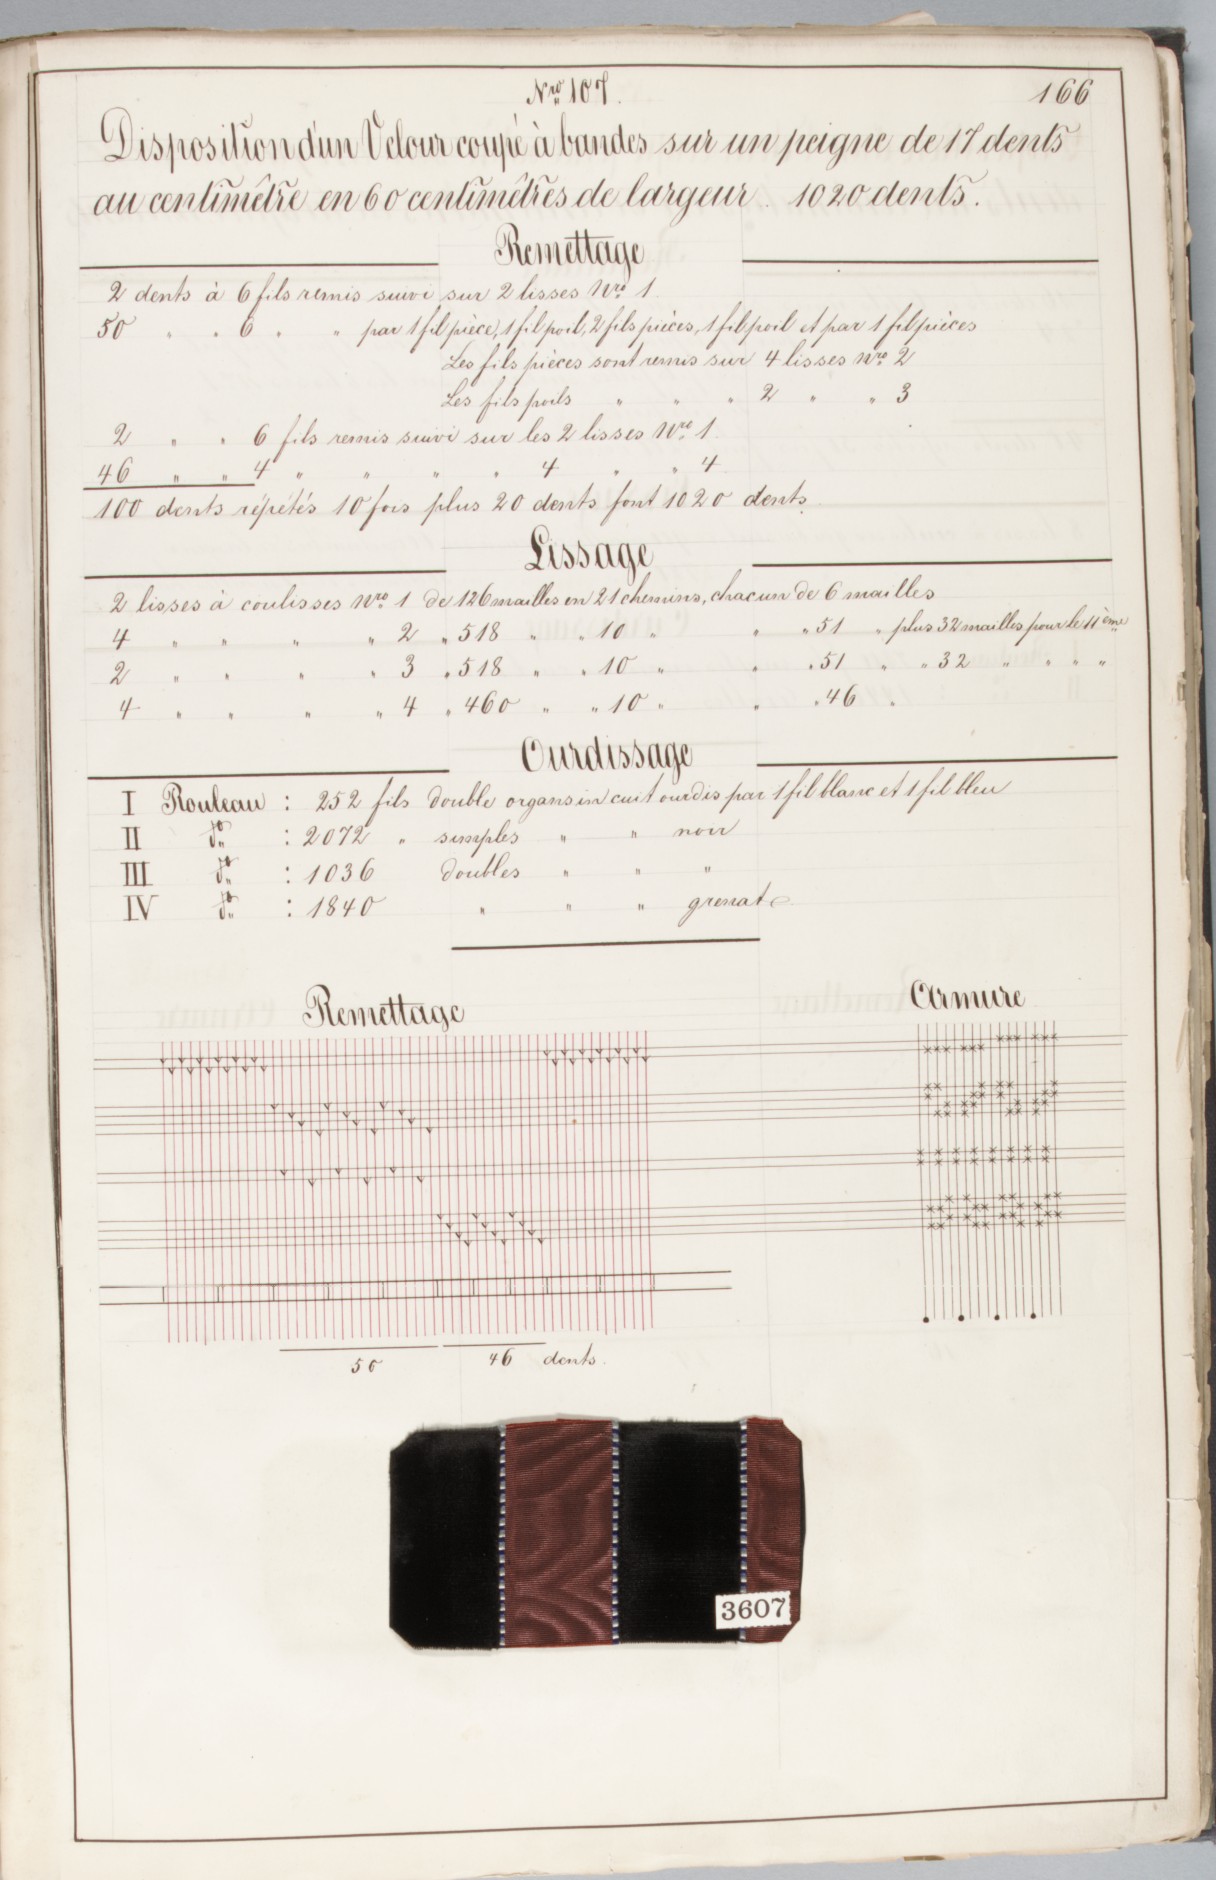 Nro 107.
166
Disposition d'un Velour coupé à bandes sur un peigne de 17 dents
au centimêtre en 60 centimêtres de largeur. 1020 dents.
Remettage
2 dents à 6 fils remis suivi sur 2 lisses Nro 1.
50 " " 6 " " par 1 fil pièce, 1 fil poil, 2 fils pièces, 1 fil poil et par 1 fil pièces
Les fils pièces sont remis sur 4 lisses Nro 2
Les fils poils " " " 2 " " 3
2 " " 6 fils remis suivi sur les 2 lisses Nro 1.
46 " " 4 " " " " 4 " " 4
100 dents répétés 10 fois plus 20 dents font 1020 dents.
Lissage
2 lisses à coulisses Nro 1 de 126 mailles en 21 chemins, chacun de 6 mailles
4 " " " " 2 " 518 " " 10 " " " 51 " plus 32 mailles pour le 11ème
2 " " " " 3 " 518 " " 10 " " " 51 " " 32 " " " "
4 " " " " 4 " 460 " " 10 " " " 46 "
Ourdissage
I Rouleau : 252 fils double organsin cuit ourdis par 1 fil blanc et 1 fil bleu
II do : 2072 " simples " " noir
III do : 1036 doubles " " "
IV do : 1840 " " " grenat
Remettage
Armure
50 46 dents.
3607